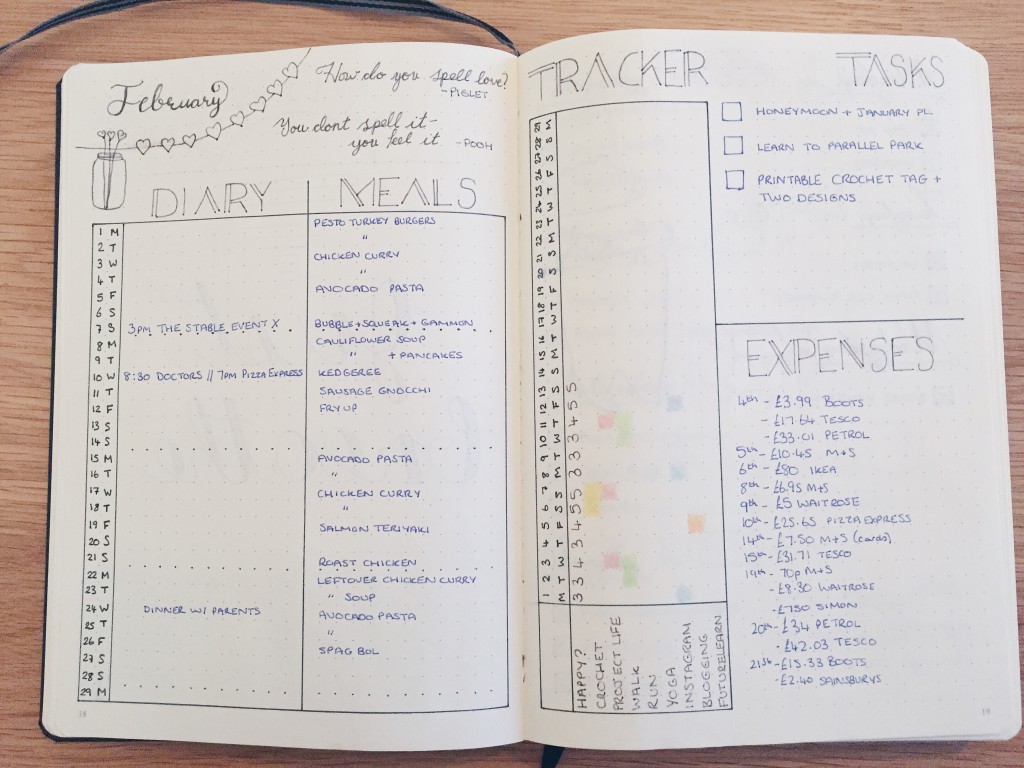 February
How do you spell love?
-PIGLET
You dont spell it-
you feel it -POOH
DIARY
MEALS
1 M PESTO TURKEY BURGERS
2 T "
3 W CHICKEN CURRY
4 T "
5 F AVOCADO PASTA
6 S
7 S 3PM THE STABLE EVENT X BUBBLE+SQUEAK+GAMMON
8 M CAULIFLOWER SOUP
9 T " + PANCAKES
10 W 8:30 DOCTORS // 7PM PIZZA EXPRESS KEDGEREE
11 T SAUSAGE GNOCCHI
12 F FRY UP
13 S
14 S
15 M AVOCADO PASTA
16 T "
17 W CHICKEN CURRY
18 T "
19 F SALMON TERIYAKI
20 S
21 S ROAST CHICKEN
22 M LEFTOVER CHICKEN CURRY
23 T " SOUP
24 W DINNER W/ PARENTS AVOCADO PASTA
25 T "
26 F SPAG BOL
27 S
28 S
29 M
18
TRACKER
1 2 3 4 5 6 7 8 9 10 11 12 13 14 15 16 17 18 19 20 21 22 23 24 25 26 27 28 29
M T W T F S S M T W T F S S M T W T F S S M T W T F S S M
HAPPY? 3 3 4 3 4 5 5 3 3 3 4 5 5
CROCHET
PROJECT LIFE
WALK
RUN
YOGA
INSTAGRAM
BLOGGING
FUTURELEARN
TASKS
HONEYMOON + JANUARY PL
LEARN TO PARALLEL PARK
PRINTABLE CROCHET TAG +
TWO DESIGNS
EXPENSES
4th - £3.99 BOOTS
- £17.64 TESCO
- £33.01 PETROL
5th - £10.45 M+S
6th - £80 IKEA
8th - £6.95 M+S
9th - £5 WAITROSE
10th - £25.65 PIZZA EXPRESS
14th - £7.50 M+S (cards)
15th - £31.71 TESCO
19th - 70p M+S
- £8.30 WAITROSE
- £7.50 SIMON
20th - £34 PETROL
- £42.03 TESCO
21st - £15.33 BOOTS
- £2.40 SAINSBURYS
19